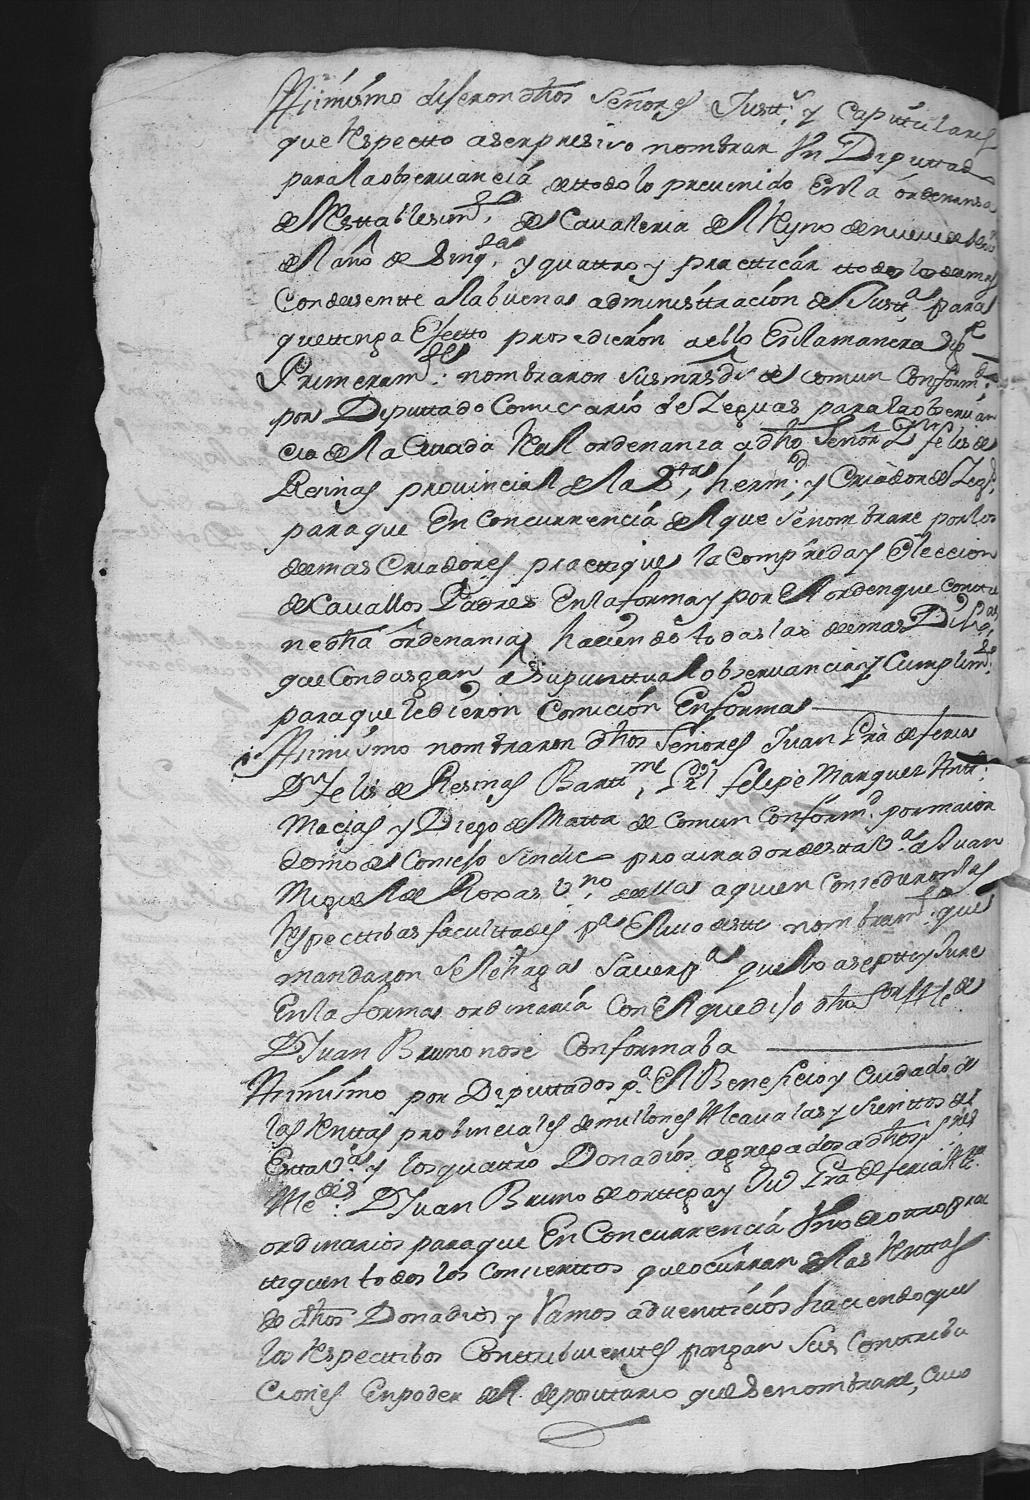 Asimismo dixeron dhos Señores Justt.ª y Capittulares
que respectto a ser presiso nombrar Un Diputtado
para la observancia de ttodo lo prevenido En la ordenansa
de Restablesim.to de Cavalleria del Reyno de nueve de
del año de Sinq.ta y quattro y practticar ttodo lo demas
Condusentte a la buena administtración de Justt.ª para
que ttenga Efectto prosedieron a ello En la manera sig.te
Primeram.te nombraron sus mrds de comun Conform.d
por Diputtado Comisario de Yeguas para la observan
cia de la Cittada Real ordenanza a dho Señor Dn felis de
Resinas provincial de la S.ta herm.d y Criador de Yeg.s
para que En Concurrencia del que se nombrare por los
demas Criadores practtique la Compra, reda y Eleccion
de Cavallos Padres En la forma y por El orden que contie
ne dha ordenanza haciendo todas las demas Dilig.as
que Condusgan a su punttual observancia y Cumplim.to
para que le dieron Comición En forma
Asimismo nombraron dhos Señores Juan Grâ de feria
Dn Felis de Resinas Bartt.me Grl felipe Marquez Antt.º
Macias y Diego de Matta de comun Conform.d por maior
domo del Consejo Sindico procurador de estta V.ª a Juan
Miguel de Roxas V.no de ella a quien Consedieron las
respecttibas facultades p.ª El uso de estte nombram.to que
mandaron se le haga saver p.ª que lo asepte y Jure
En la forma ordinaria Con El que dijo dho Sor Alc.de
Dn Juan Bruno no se Conformaba
Asimismo por Diputtados p.ª El Beneficio y Cuidado de
las renttas probinciales de millones Alcavalas y sienttos de
Estta V.ª y los quattro Donadios agregados a dhos Sres
Alc.des Dn Juan Bruno de orttega y Ju Grâ de feria
ordinarios para que En Concurrencia Uno de otro prac
ttiquen todos los conciertos que ocurran de las Renttas
de dhos Donadios y Ramos adventticios haciendo que
los respecttibos Conttribuienttes pagan sus Contribu
ciones En poder del deposittario que se nombrare, cuio